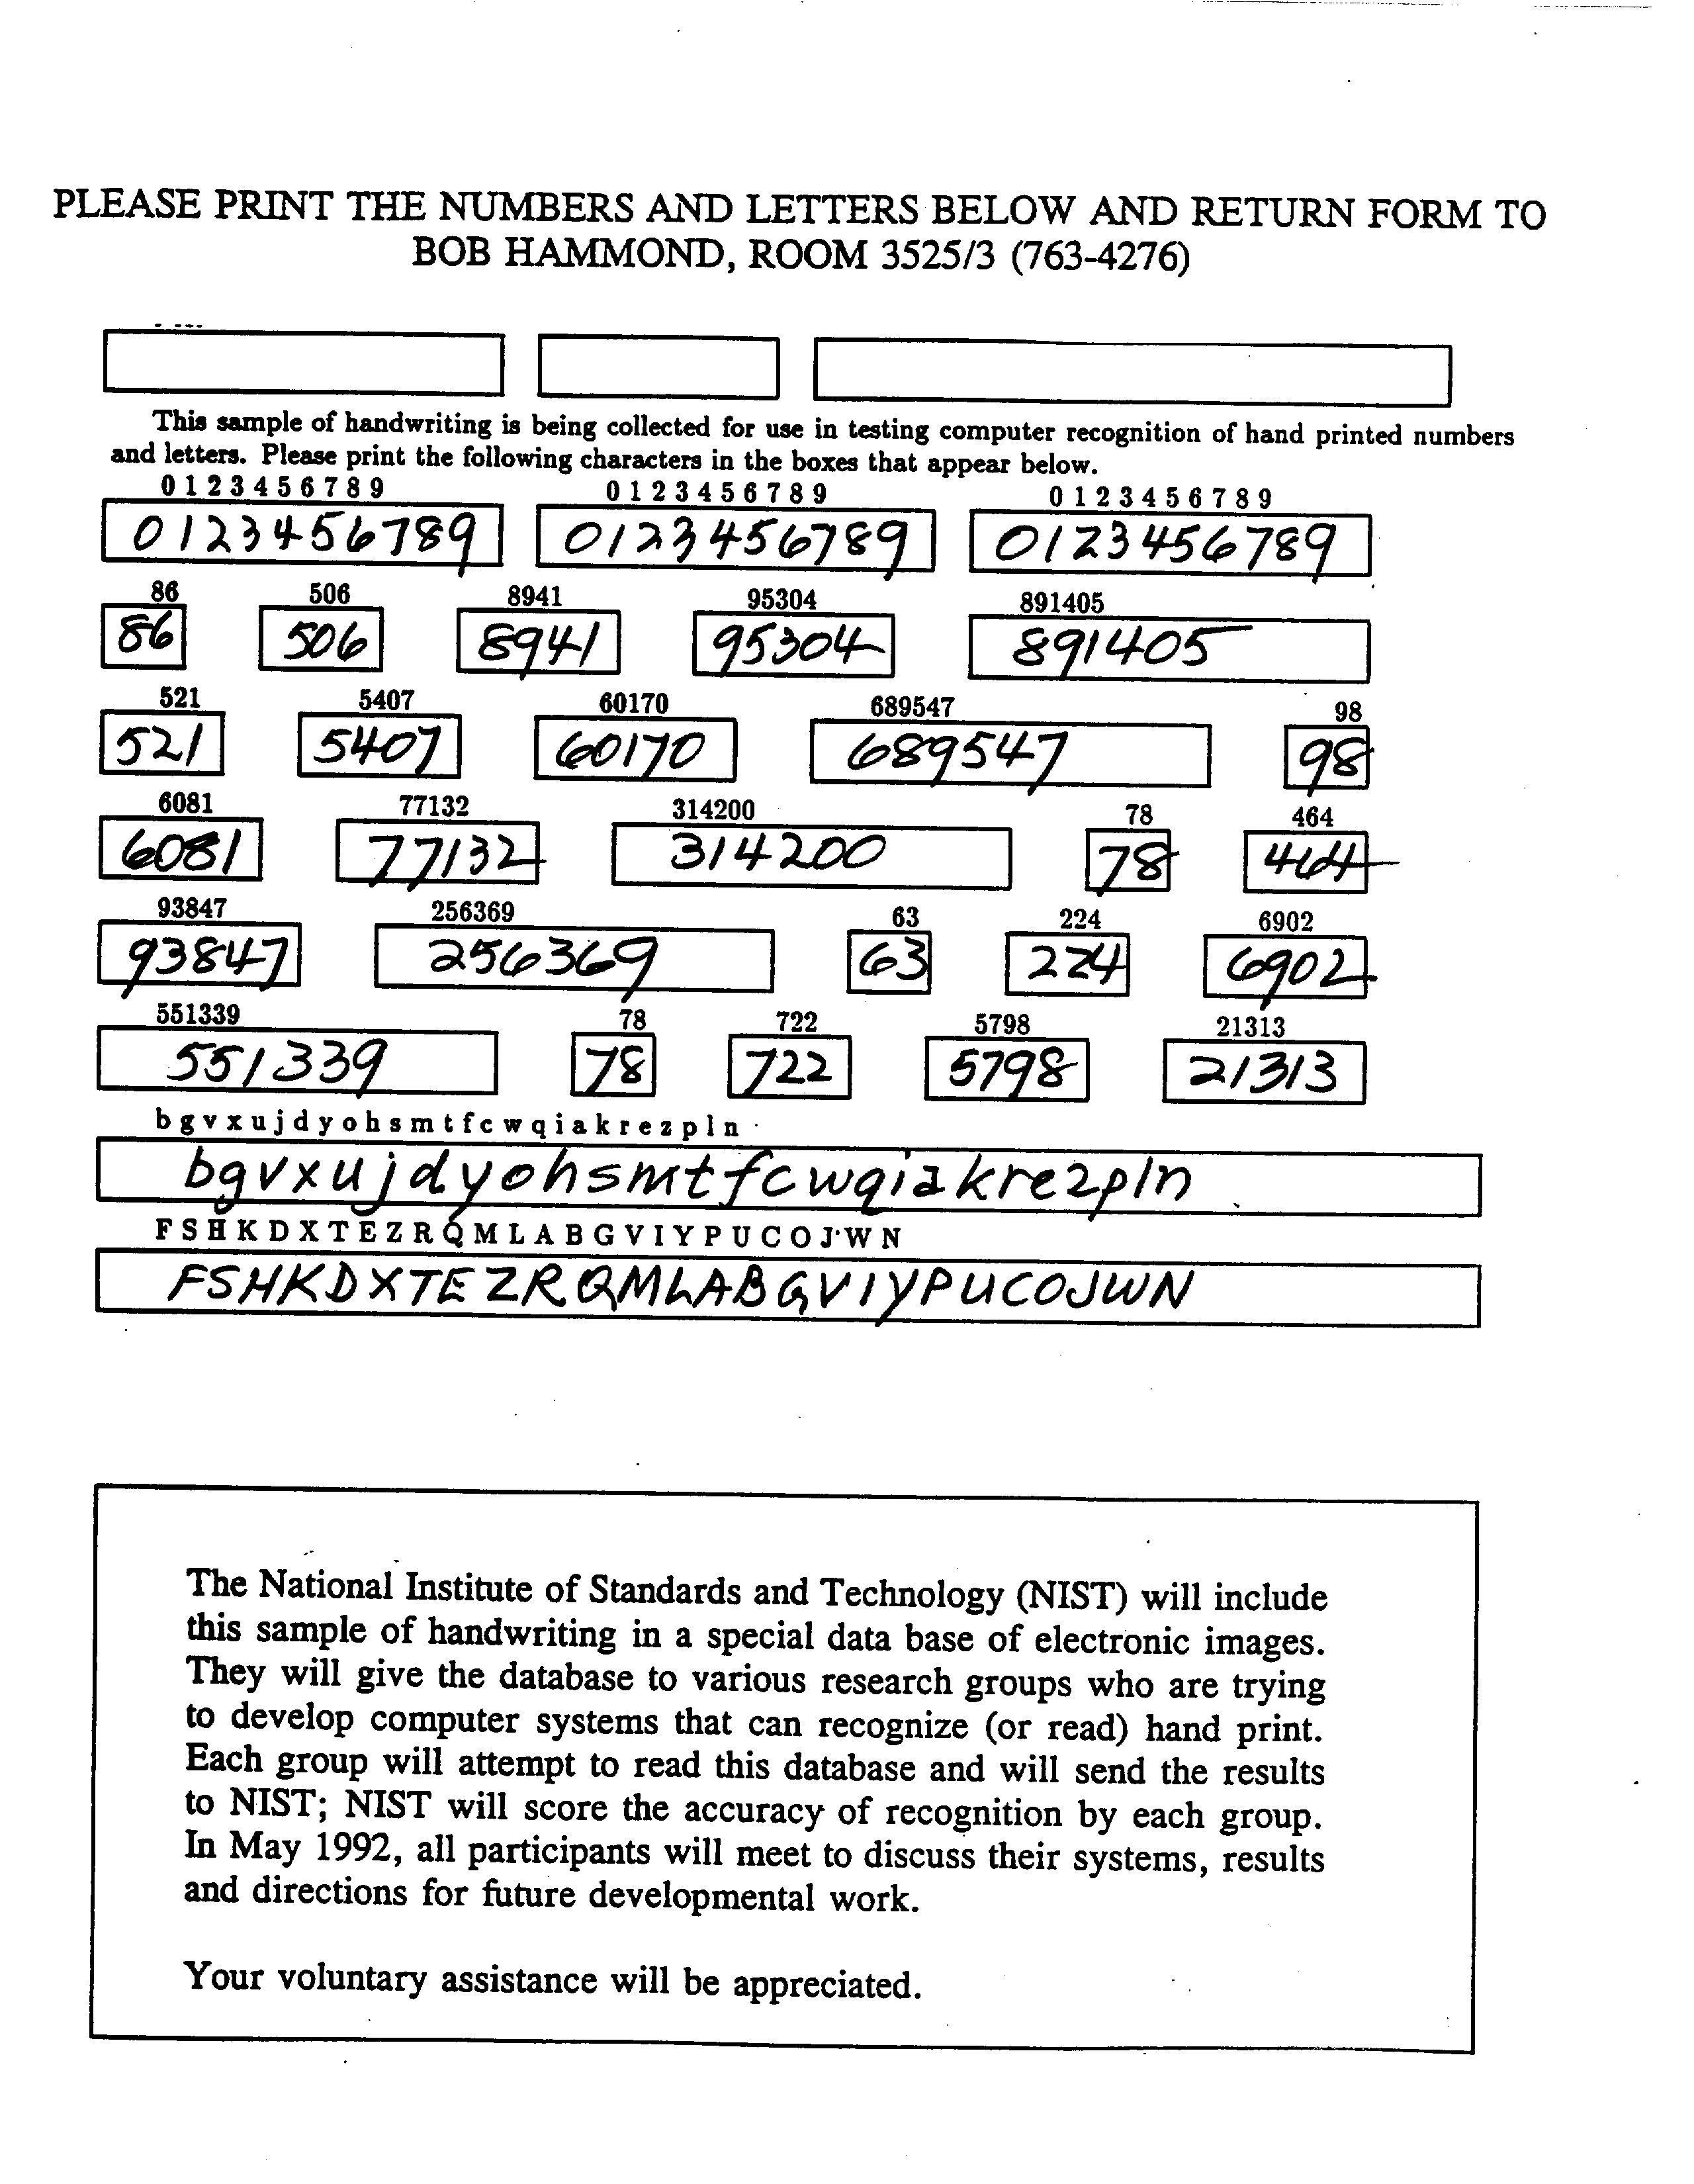 PLEASE PRINT THE NUMBERS AND LETTERS BELOW AND RETURN FORM TO
BOB HAMMOND, ROOM 3525/3 (763-4276)
This sample of handwriting is being collected for use in testing computer recognition of hand printed numbers
and letters. Please print the following characters in the boxes that appear below.
0 1 2 3 4 5 6 7 8 9 0 1 2 3 4 5 6 7 8 9 0 1 2 3 4 5 6 7 8 9
0123456789 0123456789 0123456789
86 506 8941 95304 891405
86 506 8941 95304 891405
521 5407 60170 689547 98
521 5407 60170 689547 98
6081 77132 314200 78 464
6081 77132 314200 78 464
93847 256369 63 224 6902
93847 256369 63 224 6902
551339 78 722 5798 21313
551339 78 722 5798 21313
b g v x u j d y o h s m t f c w q i a k r e z p l n
bgvxujdyohsmtfcwqiakrezpln
F S H K D X T E Z R Q M L A B G V I Y P U C O J W N
FSHKDXTEZRQMLABGVIYPUCOJWN
The National Institute of Standards and Technology (NIST) will include
this sample of handwriting in a special data base of electronic images.
They will give the database to various research groups who are trying
to develop computer systems that can recognize (or read) hand print.
Each group will attempt to read this database and will send the results
to NIST; NIST will score the accuracy of recognition by each group.
In May 1992, all participants will meet to discuss their systems, results
and directions for future developmental work.
Your voluntary assistance will be appreciated.